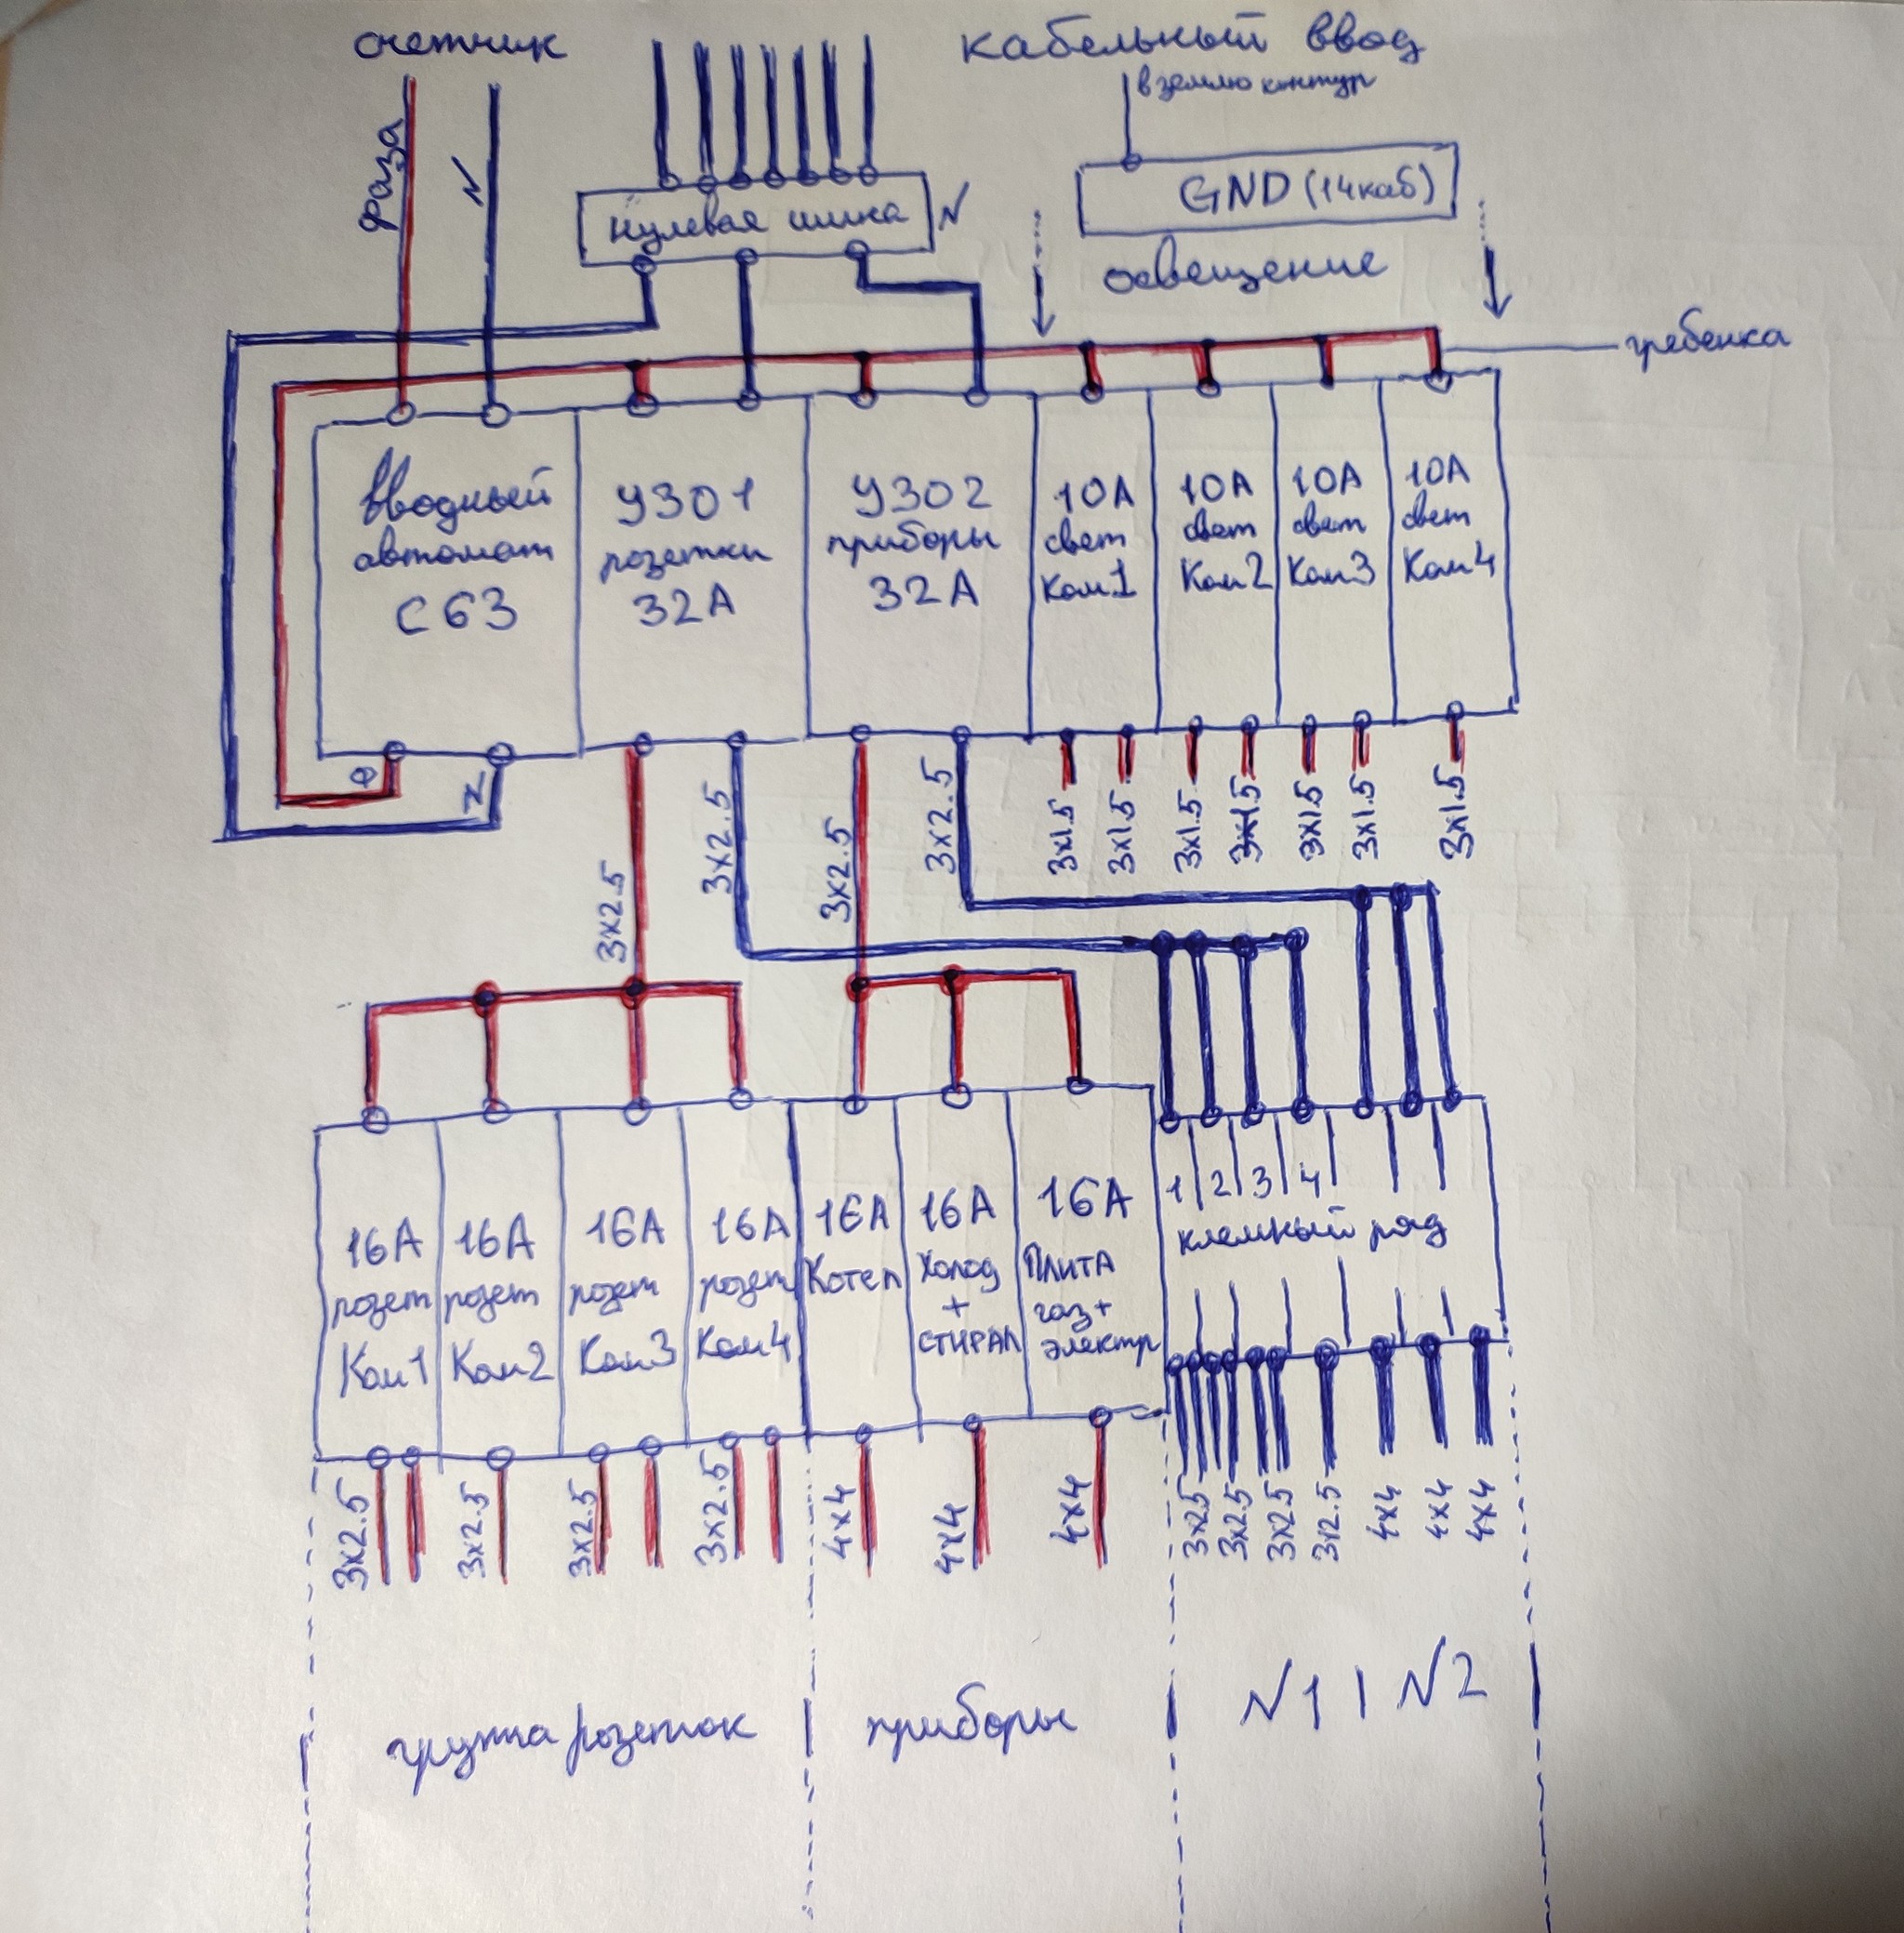 счетчик
кабельный ввод
в землю контур
фаза
N
нулевая шина
N
GND (14каб)
освещение
гребенка
вводный
автомат
С63
УЗО1
розетки
32А
УЗО2
приборы
32А
10А
свет
Ком1
10А
свет
Ком2
10А
свет
Ком3
10А
свет
Ком4
Ф
N
3х2.5
3х2.5
3х2.5
3х2.5
3х1.5
3х1.5
3х1.5
3х1.5
3х1.5
3х1.5
3х1.5
16А
розет
Ком1
16А
розет
Ком2
16А
розет
Ком3
16А
розет
Ком4
16А
Котел
16А
Холод
+
СТИРАЛ
16А
ПЛИТА
газ+
электр
1 2 3 4
клемный ряд
3х2.5
3х2.5
3х2.5
3х2.5
4х4
4х4
4х4
3х2.5
3х2.5
3х2.5
3х2.5
4х4
4х4
4х4
группа розеток
приборы
N1 | N2